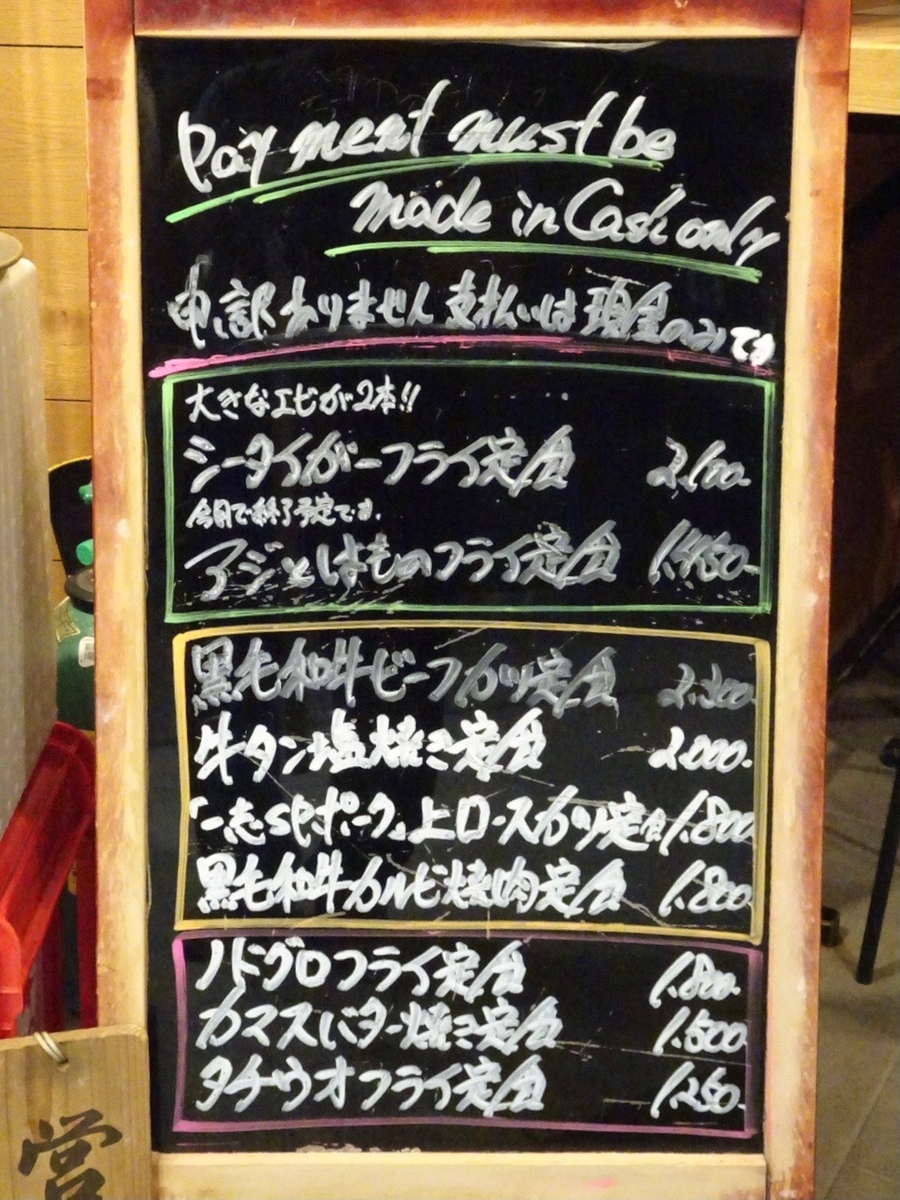 Payment must be
made in Cash only
申し訳ありません 支払いは現金のみです
大きなエビが2本!!
シータイガーフライ定食 2,100.
今日で終了予定です.
アジとはものフライ定食 1,450.
黒毛和牛ビーフカツ定食 2,300.
牛タン塩焼き定食 2,000.
「一志SPポーク」上ロースカツ定食 1,800
黒毛和牛カルビ焼肉定食 1,800
ノドグロフライ定食 1,800.
カマスバター焼き定食 1,500
タチウオフライ定食 1,250.
営